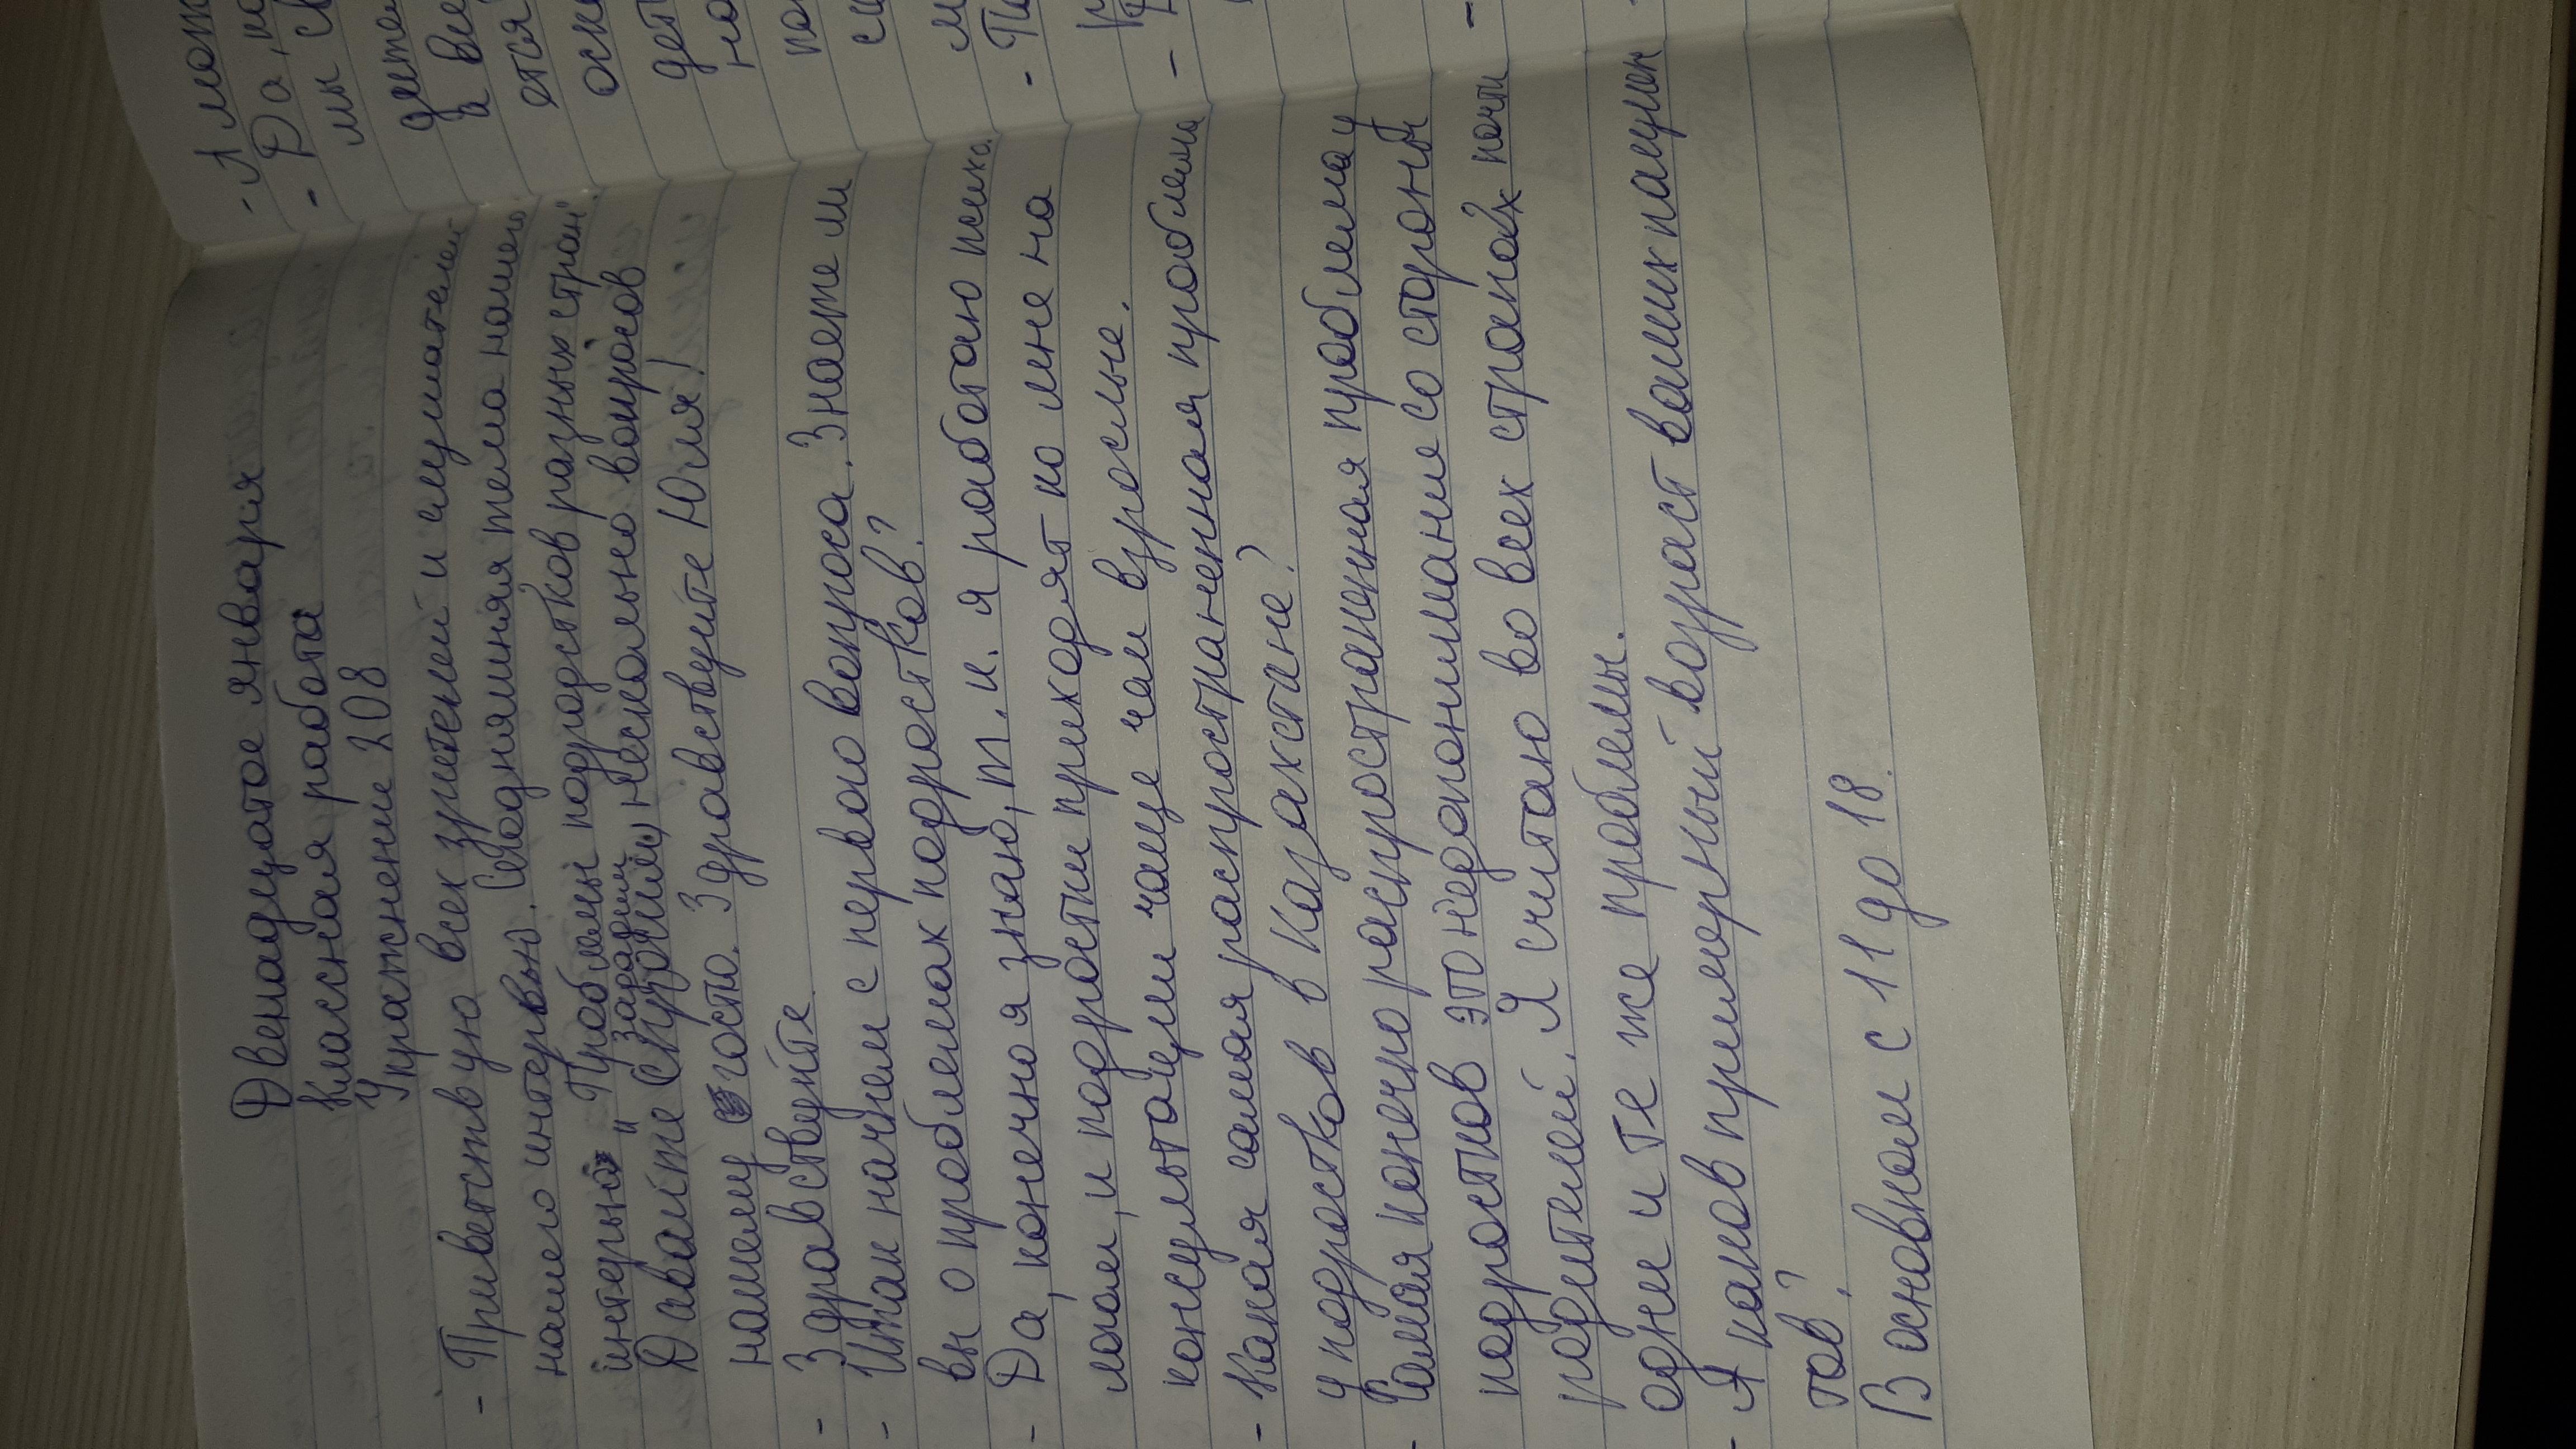 Двенадцатое января
Классная работа
Упражнение 208
- Приветствую всех зрителей и слушателей
нашего интервью. Сегодняшняя тема нашего
интервью "Проблемы подростков разных стран".
задним
Давайте спросим несколько вопросов
нашему гостю. Здравствуйте Юля!
- Здравствуйте.
- Итак начнем с первого вопроса. Знаете ли
вы о проблемах подростков?
- Да, конечно я знаю, т.к. я работаю психо
логом, и подростки приходят ко мне на
консультации чаще чем взрослые.
- Какая самая распространенная проблема
у подростков в Казахстане?
- Самая конечно распространенная проблема у
подростков это недопонимание со стороны
родителей. Я считаю во всех странах почти
одни и те же проблемы.
- А каков примерный возраст ваших пациен
тов?
В основном с 11 до 18.
- А мот
- Да, на
мы св
дете
и все
ется
осн
дет
но
по
см
м
- Пи
-
-